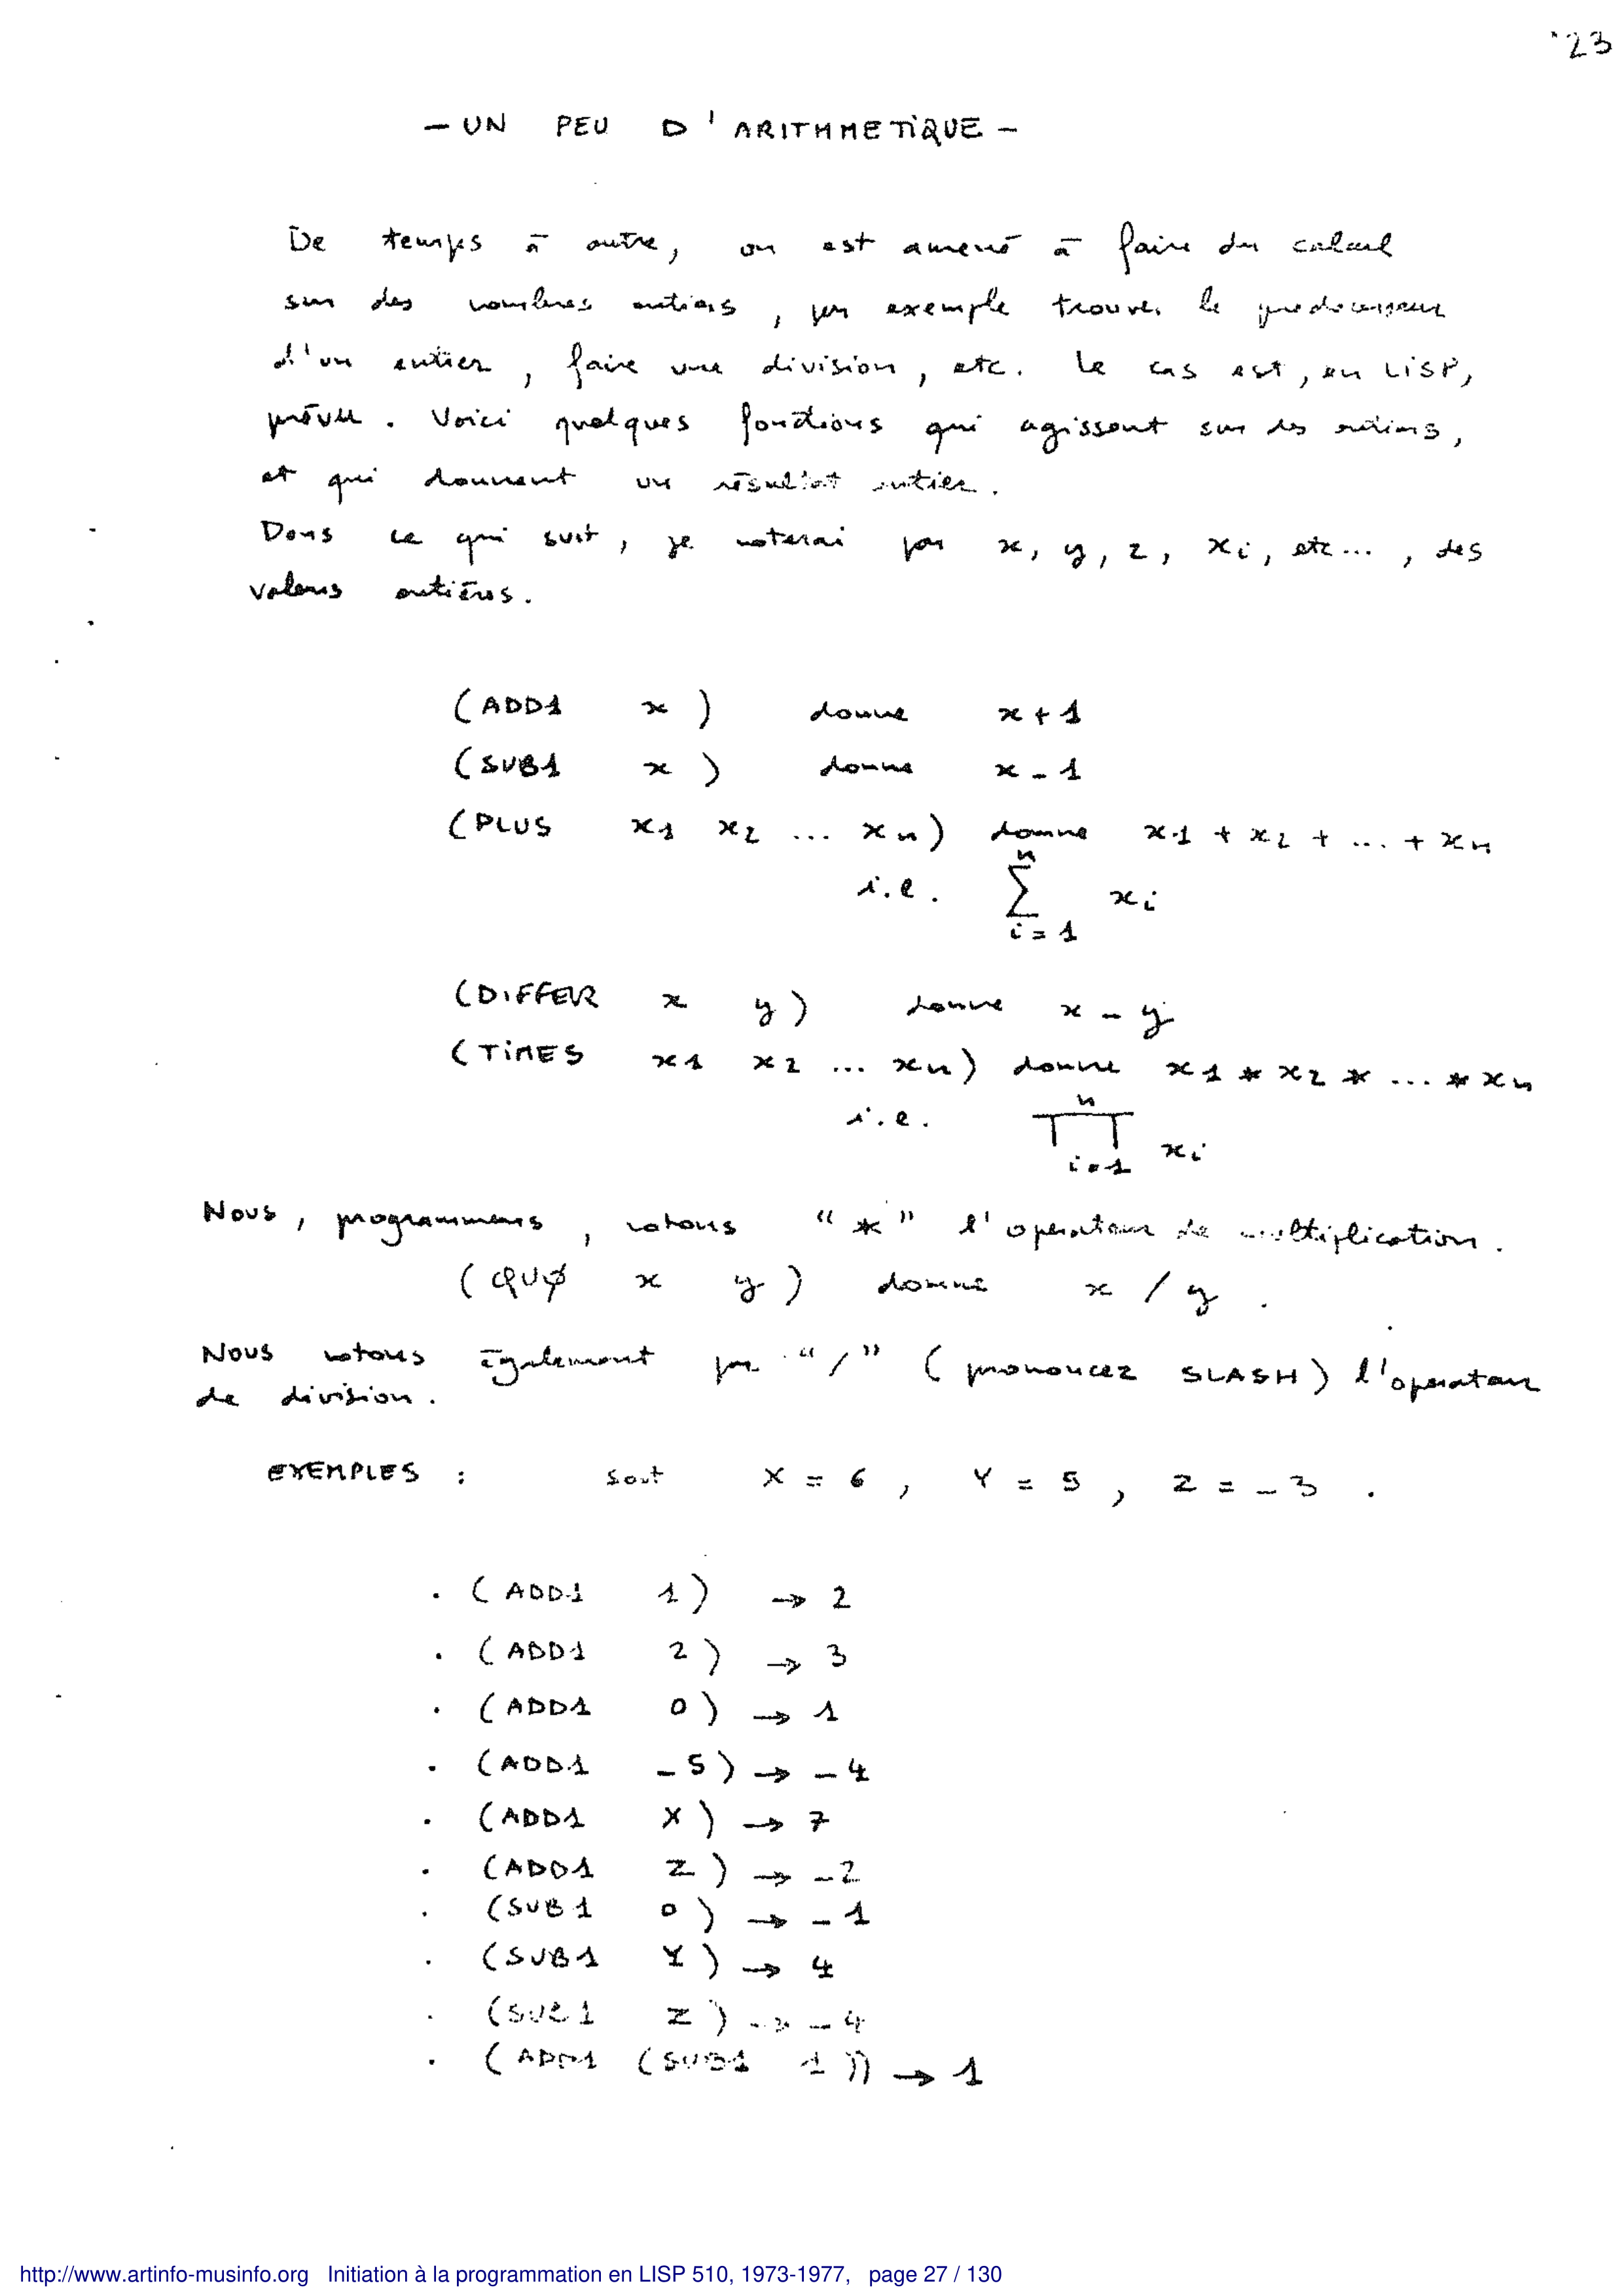 23
- UN PEU D'ARITHMETIQUE -
De temps à autre, on est amené à faire du calcul
sur des nombres entiers, par exemple trouver le predecesseur
d'un entier, faire une division, etc. Le cas est, en LISP,
prévu. Voici quelques fonctions qui agissent sur des entiers,
et qui donnent un résultat entier.
Dans ce qui suit, je noterai par x, y, z, xi, etc..., des
valeurs entières.
(ADD1 x) donne x + 1
(SUB1 x) donne x - 1
(PLUS x1 x2 ... xn) donne x1 + x2 + ... + xn
i.e. n ∑ i = 1 xi
(DIFFER x y) donne x - y
(TIMES x1 x2 ... xn) donne x1 * x2 * ... * xn
i.e. n ∏ i = 1 xi
Nous, programmeurs, notons "*" l'operateur de multiplication.
(QUØ x y) donne x / y.
Nous notons également par "/" (prononcez SLASH) l'operateur
de division.
EXEMPLES : soit X = 6, Y = 5, Z = -3.
. (ADD1 1) → 2
. (ADD1 2) → 3
. (ADD1 0) → 1
. (ADD1 -5) → -4
. (ADD1 X) → 7
. (ADD1 Z) → -2
. (SUB1 0) → -1
. (SUB1 Y) → 4
. (SUB1 Z) → -4
. (ADD1 (SUB1 1)) → 1
http://www.artinfo-musinfo.org Initiation à la programmation en LISP 510, 1973-1977, page 27 / 130